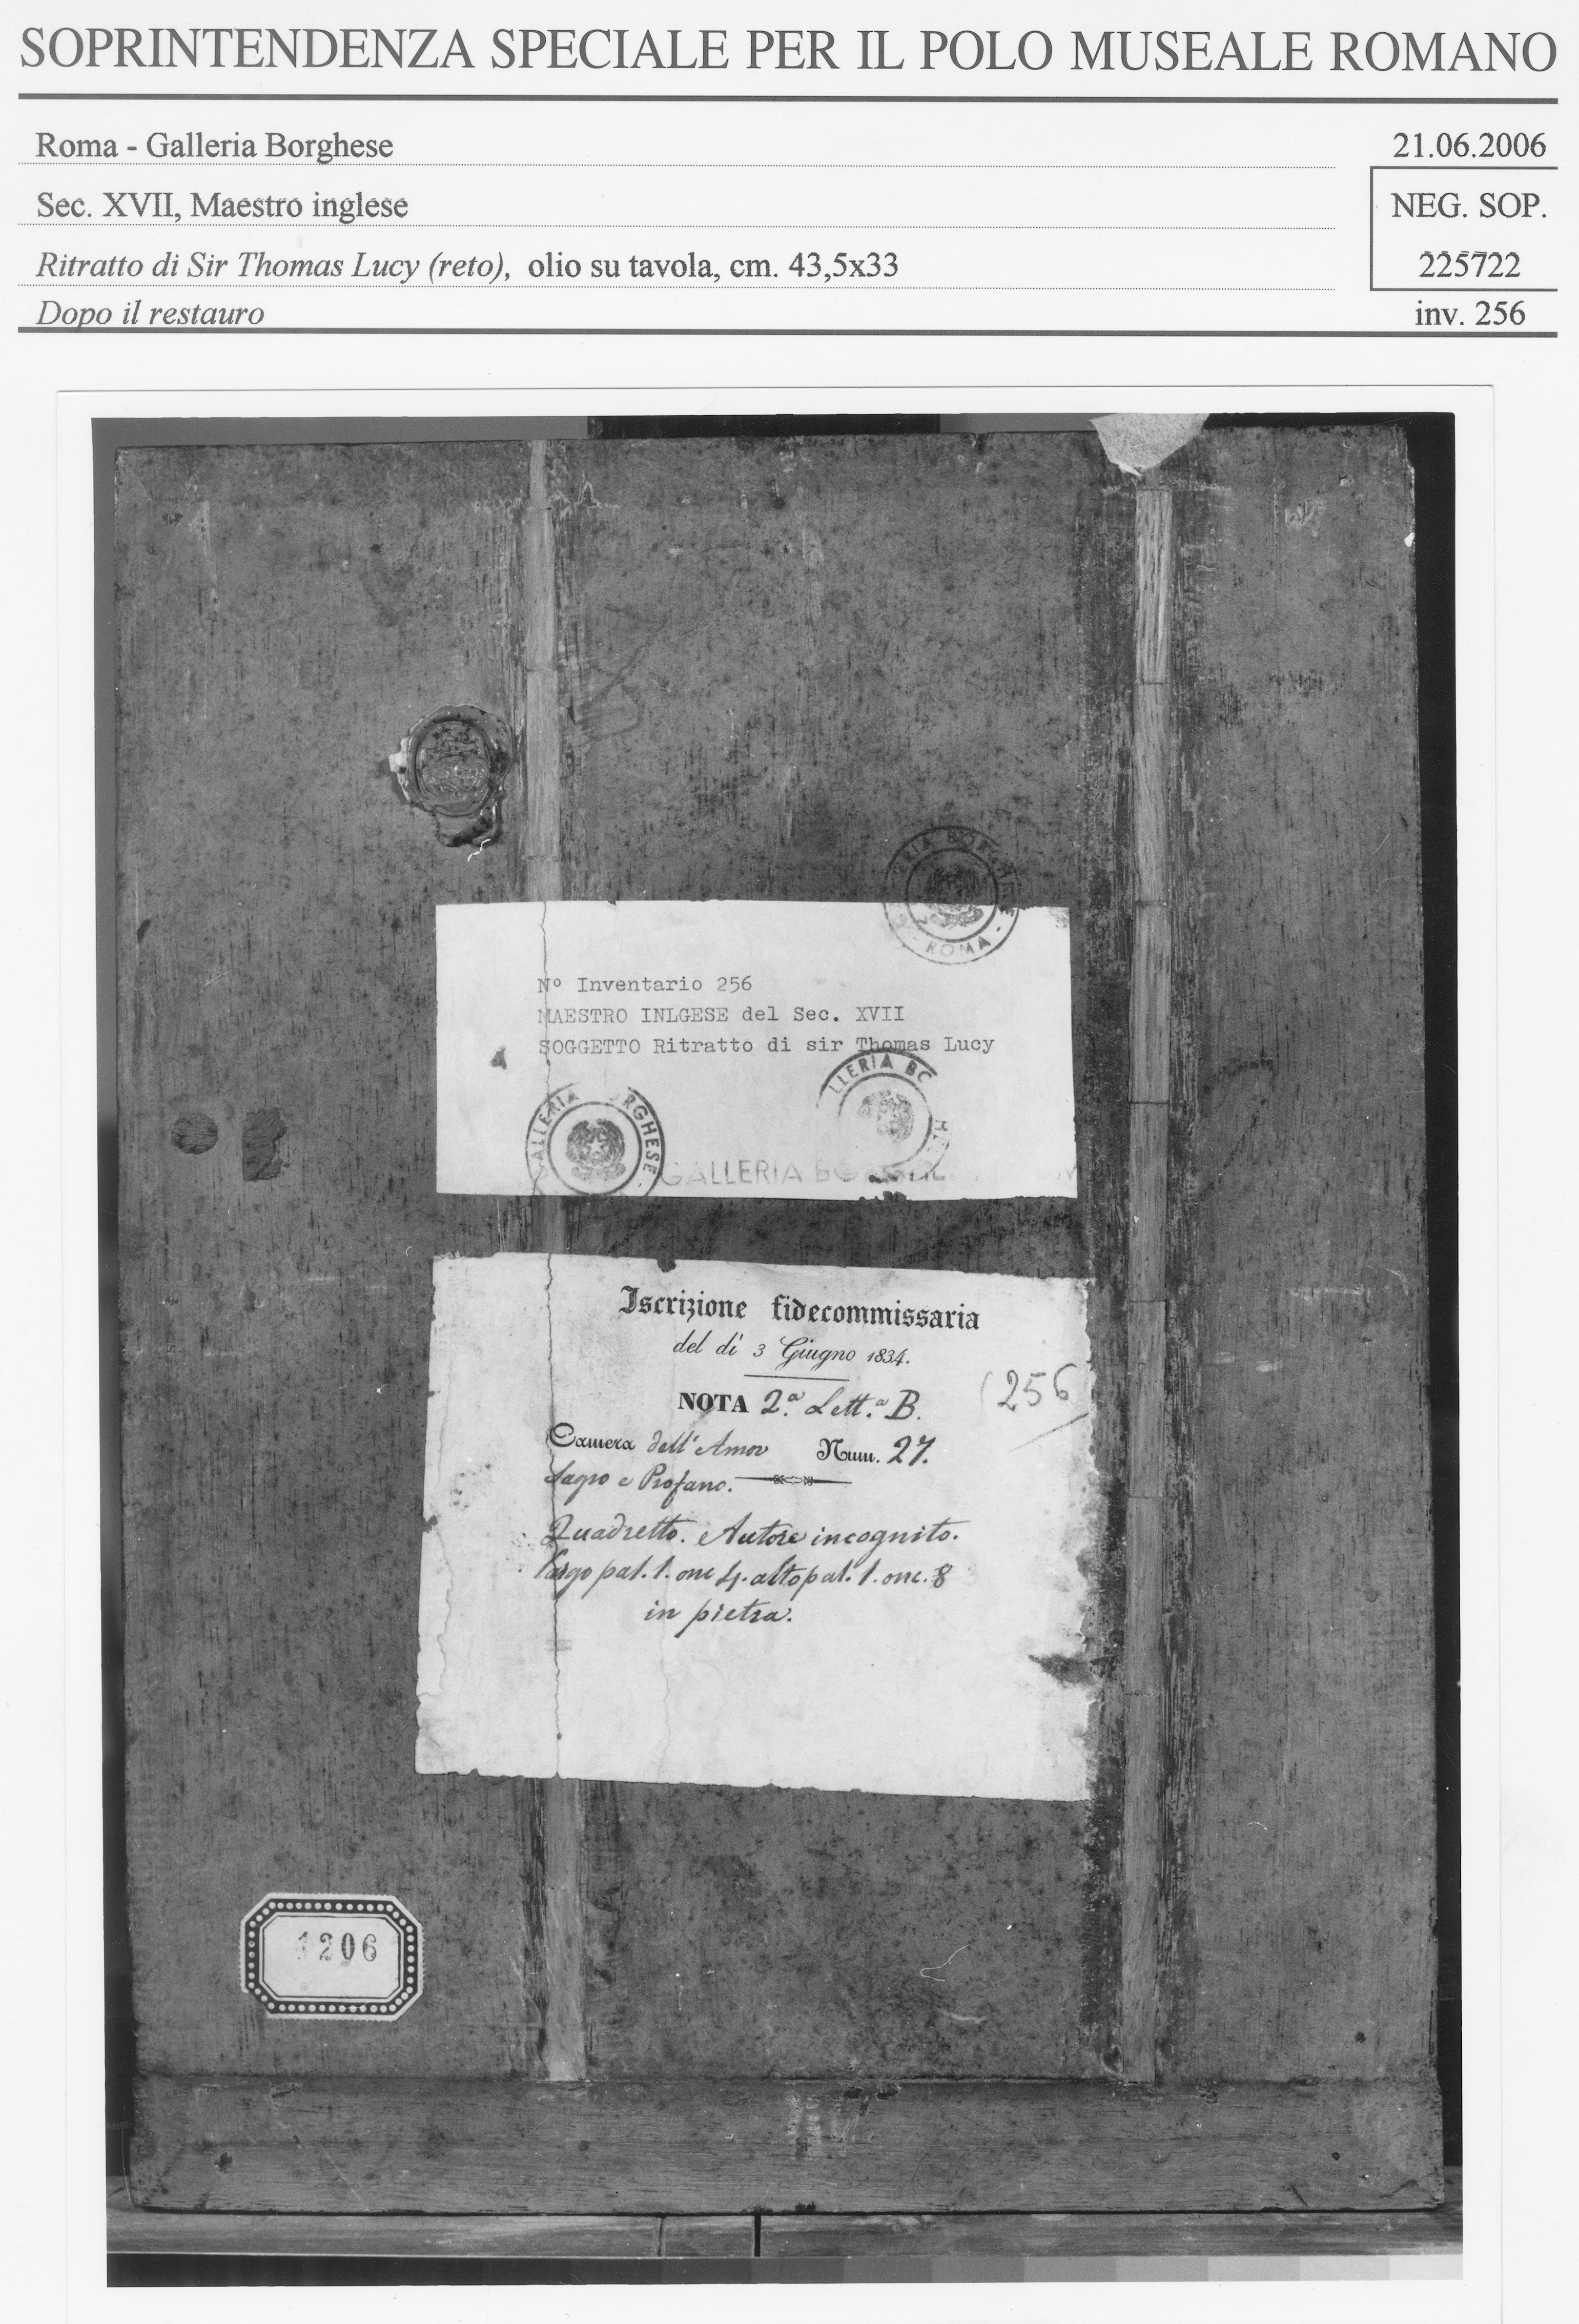 SOPRINTENDENZA SPECIALE PER IL POLO MUSEALE ROMANO
Roma - Galleria Borghese
21.06.2006
Sec. XVII, Maestro inglese
NEG. SOP.
Ritratto di Sir Thomas Lucy (reto), olio su tavola, cm. 43,5x33
225722
Dopo il restauro
inv. 256
ROMA
Nº Inventario 256
MAESTRO INLGESE del Sec. XVII
SOGGETTO Ritratto di sir Thomas Lucy
LLERIA BO
ALLERIA RGHESE
GALLERIA
Iscrizione fidecommissaria
del di 3 Giugno 1834.
(256
NOTA 2.ª Lett.ª B.
Camera dell'Amor Num. 27.
Sagro e Profano.
Quadretto. Autore incognito.
largo pal. 1. onc 4. alto pal. 1. onc. 8
in pietra.
1206